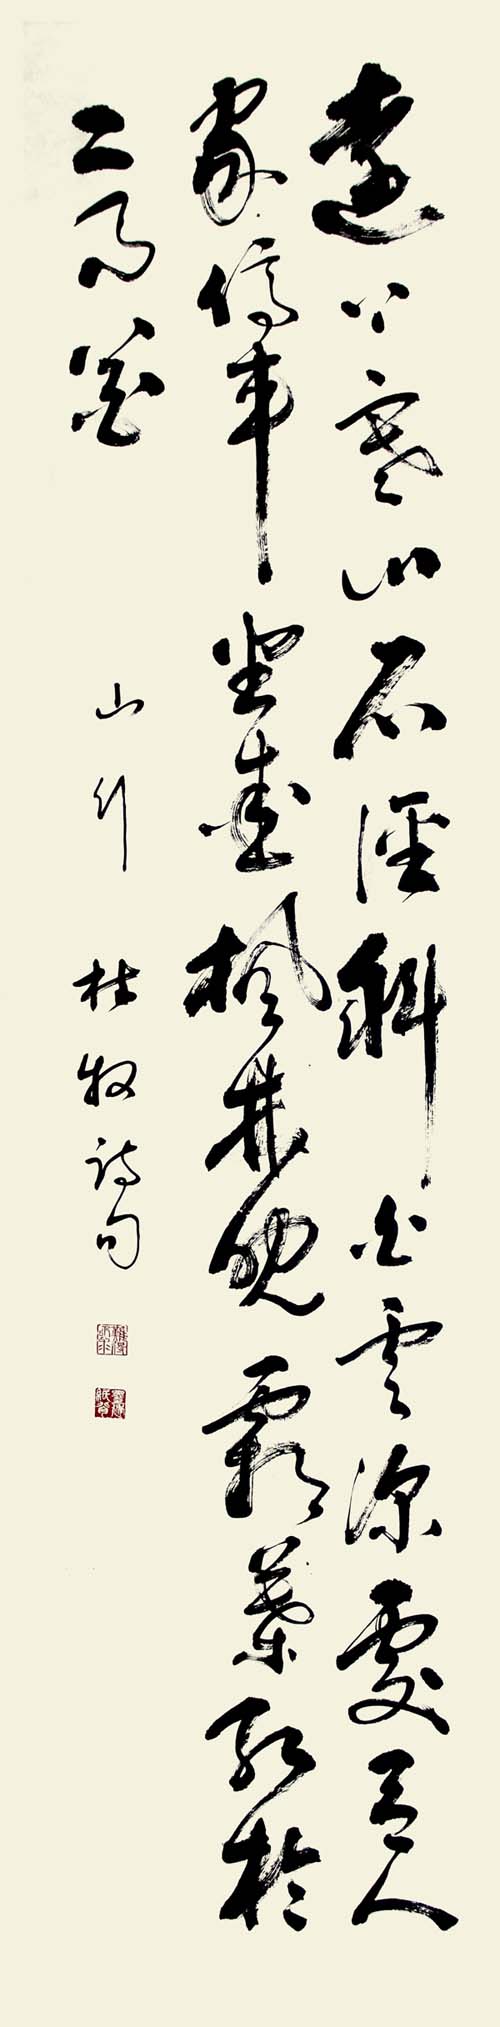 遠上寒山石徑斜白雲深處有人
家停車坐愛楓林晚霜葉紅於
二月花
山行 杜牧詩句